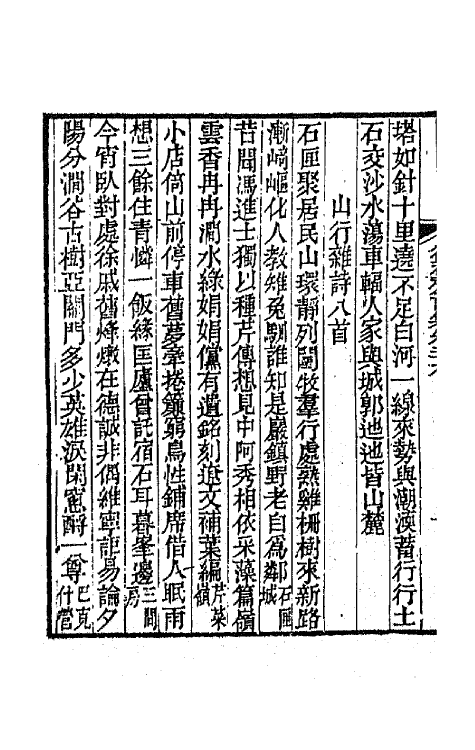 塔如針十里遶不足白河一線來勢與潮漢蓄行行土
石交沙水蕩車輻人家與城郭迤迤皆山麓
山行雜詩八首
石匣聚居民山環靜列闤牧羣行處熟雞柵樹來新路
漸崎嶇化人教雉兔馴誰知是巖鎮野老自為鄰石匣城
昔聞馮進士獨以種芹傳想見中阿秀相依采藻篇嶺
雲香冉冉澗水綠娟娟儻有遺銘刻遼文補葉編芹菜嶺
小店倚山前停車舊夢牽捲簾窮鳥性鋪席借人眠雨
想三餘住青憐一飯緣匡廬曾託宿石耳暮峯邊三間房
今宵臥對處徐戚舊烽燉在德誠非偶維寧詎易論夕
陽分澗谷古樹亞關門多少英雄淚閑窻酹一尊巴克什營